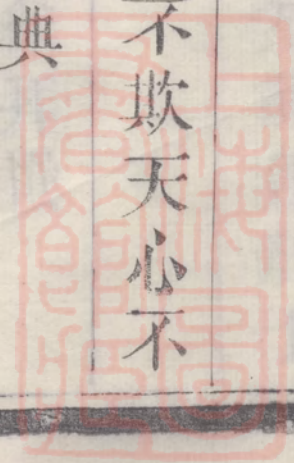 不欺天心不
典